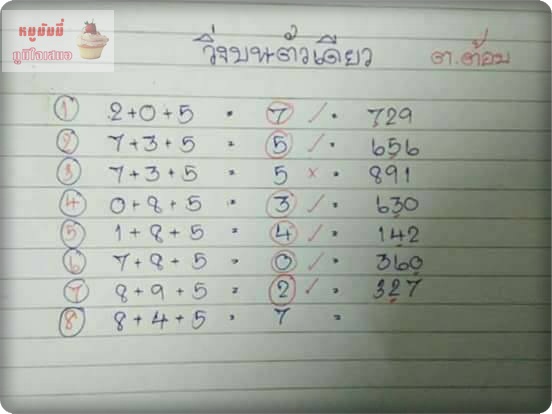 หมูมัมมี่
ภูมิใจเสมอ
วิ่งบนตัวเดียว ต.ต้อม
① 2+0+5 = 7 ✓ = 729
② 7+3+5 = 5 ✓ = 656
③ 7+3+5 = 5 × = 891
④ 0+8+5 = 3 ✓ = 630
⑤ 1+8+5 = 4 ✓ = 142
⑥ 7+8+5 = 0 ✓ = 360
⑦ 8+9+5 = 2 ✓ = 327
⑧ 8+4+5 = 7 =